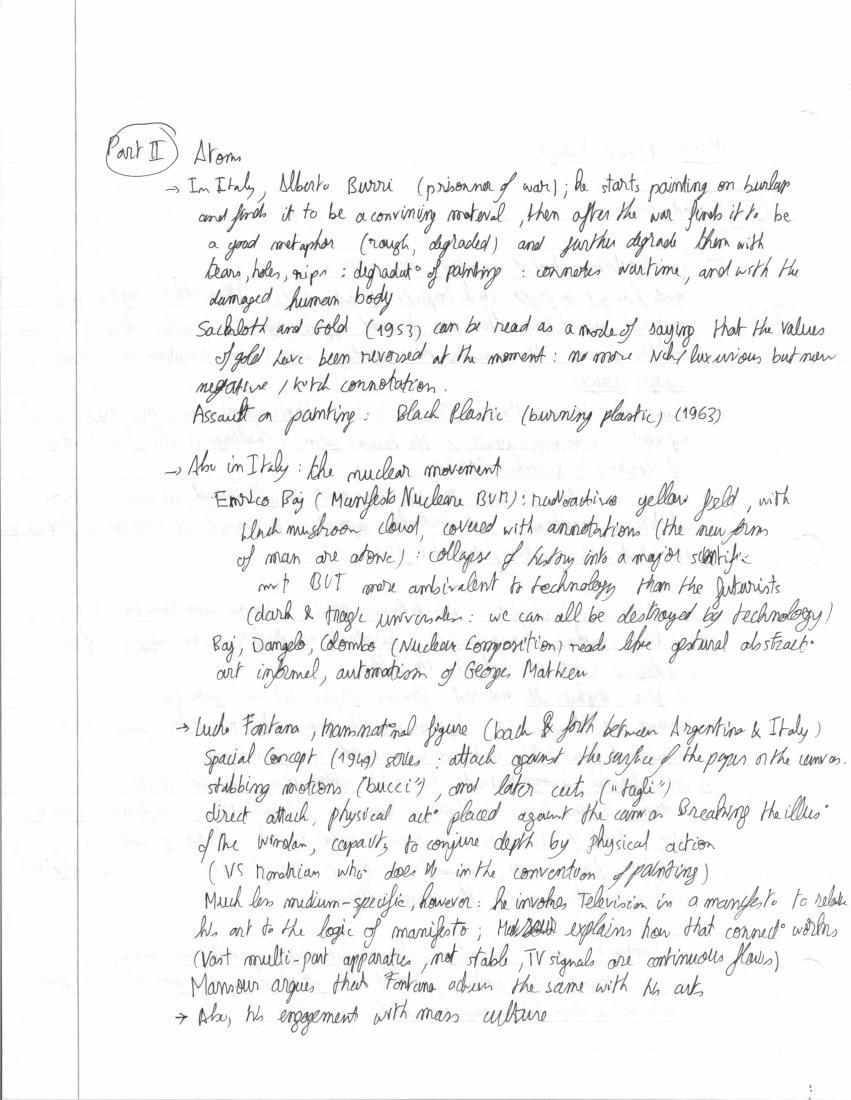 Part II Atoms
→ In Italy, Alberto Burri (prisonner of war); he starts painting on burlap
and finds it to be a convining material, then after the war finds it to be
a good metaphor (rough, degraded) and further degrade them with
tears, holes, rips : degradat° of painting : connotes wartime, and with the
damaged human body
Sackloth and Gold (1953) can be read as a mode of saying that the values
of gold have been reversed at the moment : no more rich/luxurious but now
negative / kitch connotation.
Assault on painting : Black Plastic (burning plastic) (1963)
→ Also in Italy : the nuclear movement
Enrico Baj (Manifesto Nucleare BUM) : radioactive yellow field, with
black mushroom cloud, covered with annotations (the new forms
of man are atomic) : collapse of history into a major scientific
BUT more ambivalent to technology than the futurists
(dark & tragic universalism : we can all be destroyed by technology)
Baj, Dangelo, Colombo (Nuclear Composition) reads like gestural abstract°
art informel, automatism of Georges Mathieu
→ Lucio Fontana, transnational figure (back & forth between Argentina & Italy)
Spacial Concept (1949) series : attack against the surface of the paper or the canvas.
stabbing motions ("bucci"), and later cuts ("tagli")
direct attack, physical act° placed against the canvas Breaking the illus°
of the window, capacity to conjure depth by physical action
(VS Mondrian who does it in the convention of painting)
Much less medium-specific, however : he invokes Television in a manifesto to relate
his art to the logic of manifesto ; explains how that connect° works
(Vast multi-part apparatus, not stable, TV signals are continuous flows)
Mansour argues that Fontana achieves the same with his arts
→ Also, his engagement with mass culture